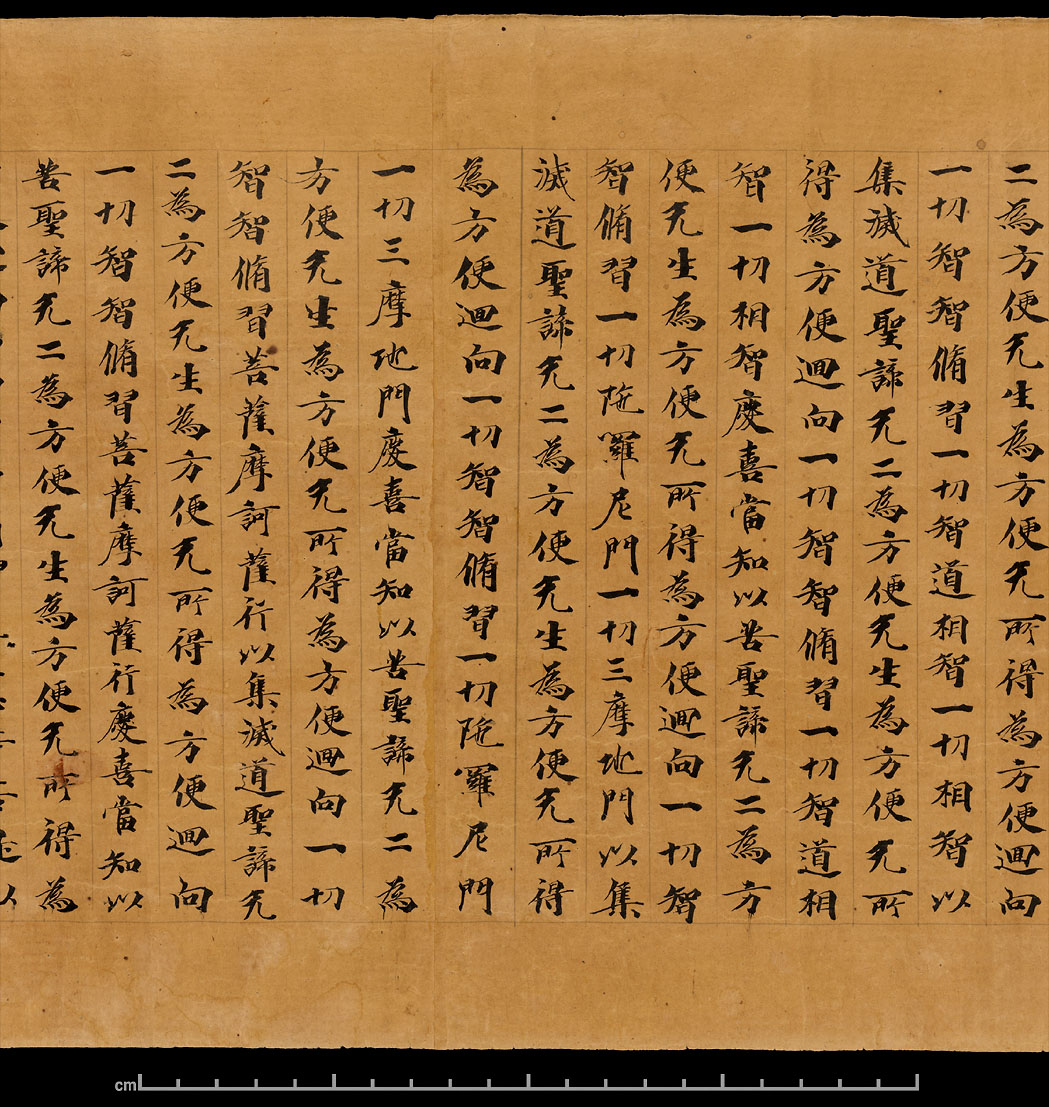 二為方便无生為方便无所得為方便迴向
一切智智脩習一切智道相智一切相智以
集滅道聖諦无二為方便无生為方便无所
得為方便迴向一切智智脩習一切智道相
智一切相智慶喜當知以苦聖諦无二為方
便无生為方便无所得為方便迴向一切智
智脩習一切陁羅尼門一切三摩地門以集
滅道聖諦无二為方便无生為方便无所得
為方便迴向一切智智脩習一切陁羅尼門
一切三摩地門慶喜當知以苦聖諦无二為
方便无生為方便无所得為方便迴向一切
智智脩習菩薩摩訶薩行以集滅道聖諦无
二為方便无生為方便无所得為方便迴向
一切智智脩習菩薩摩訶薩行慶喜當知以
苦聖諦无二為方便无生為方便无所得為
cm